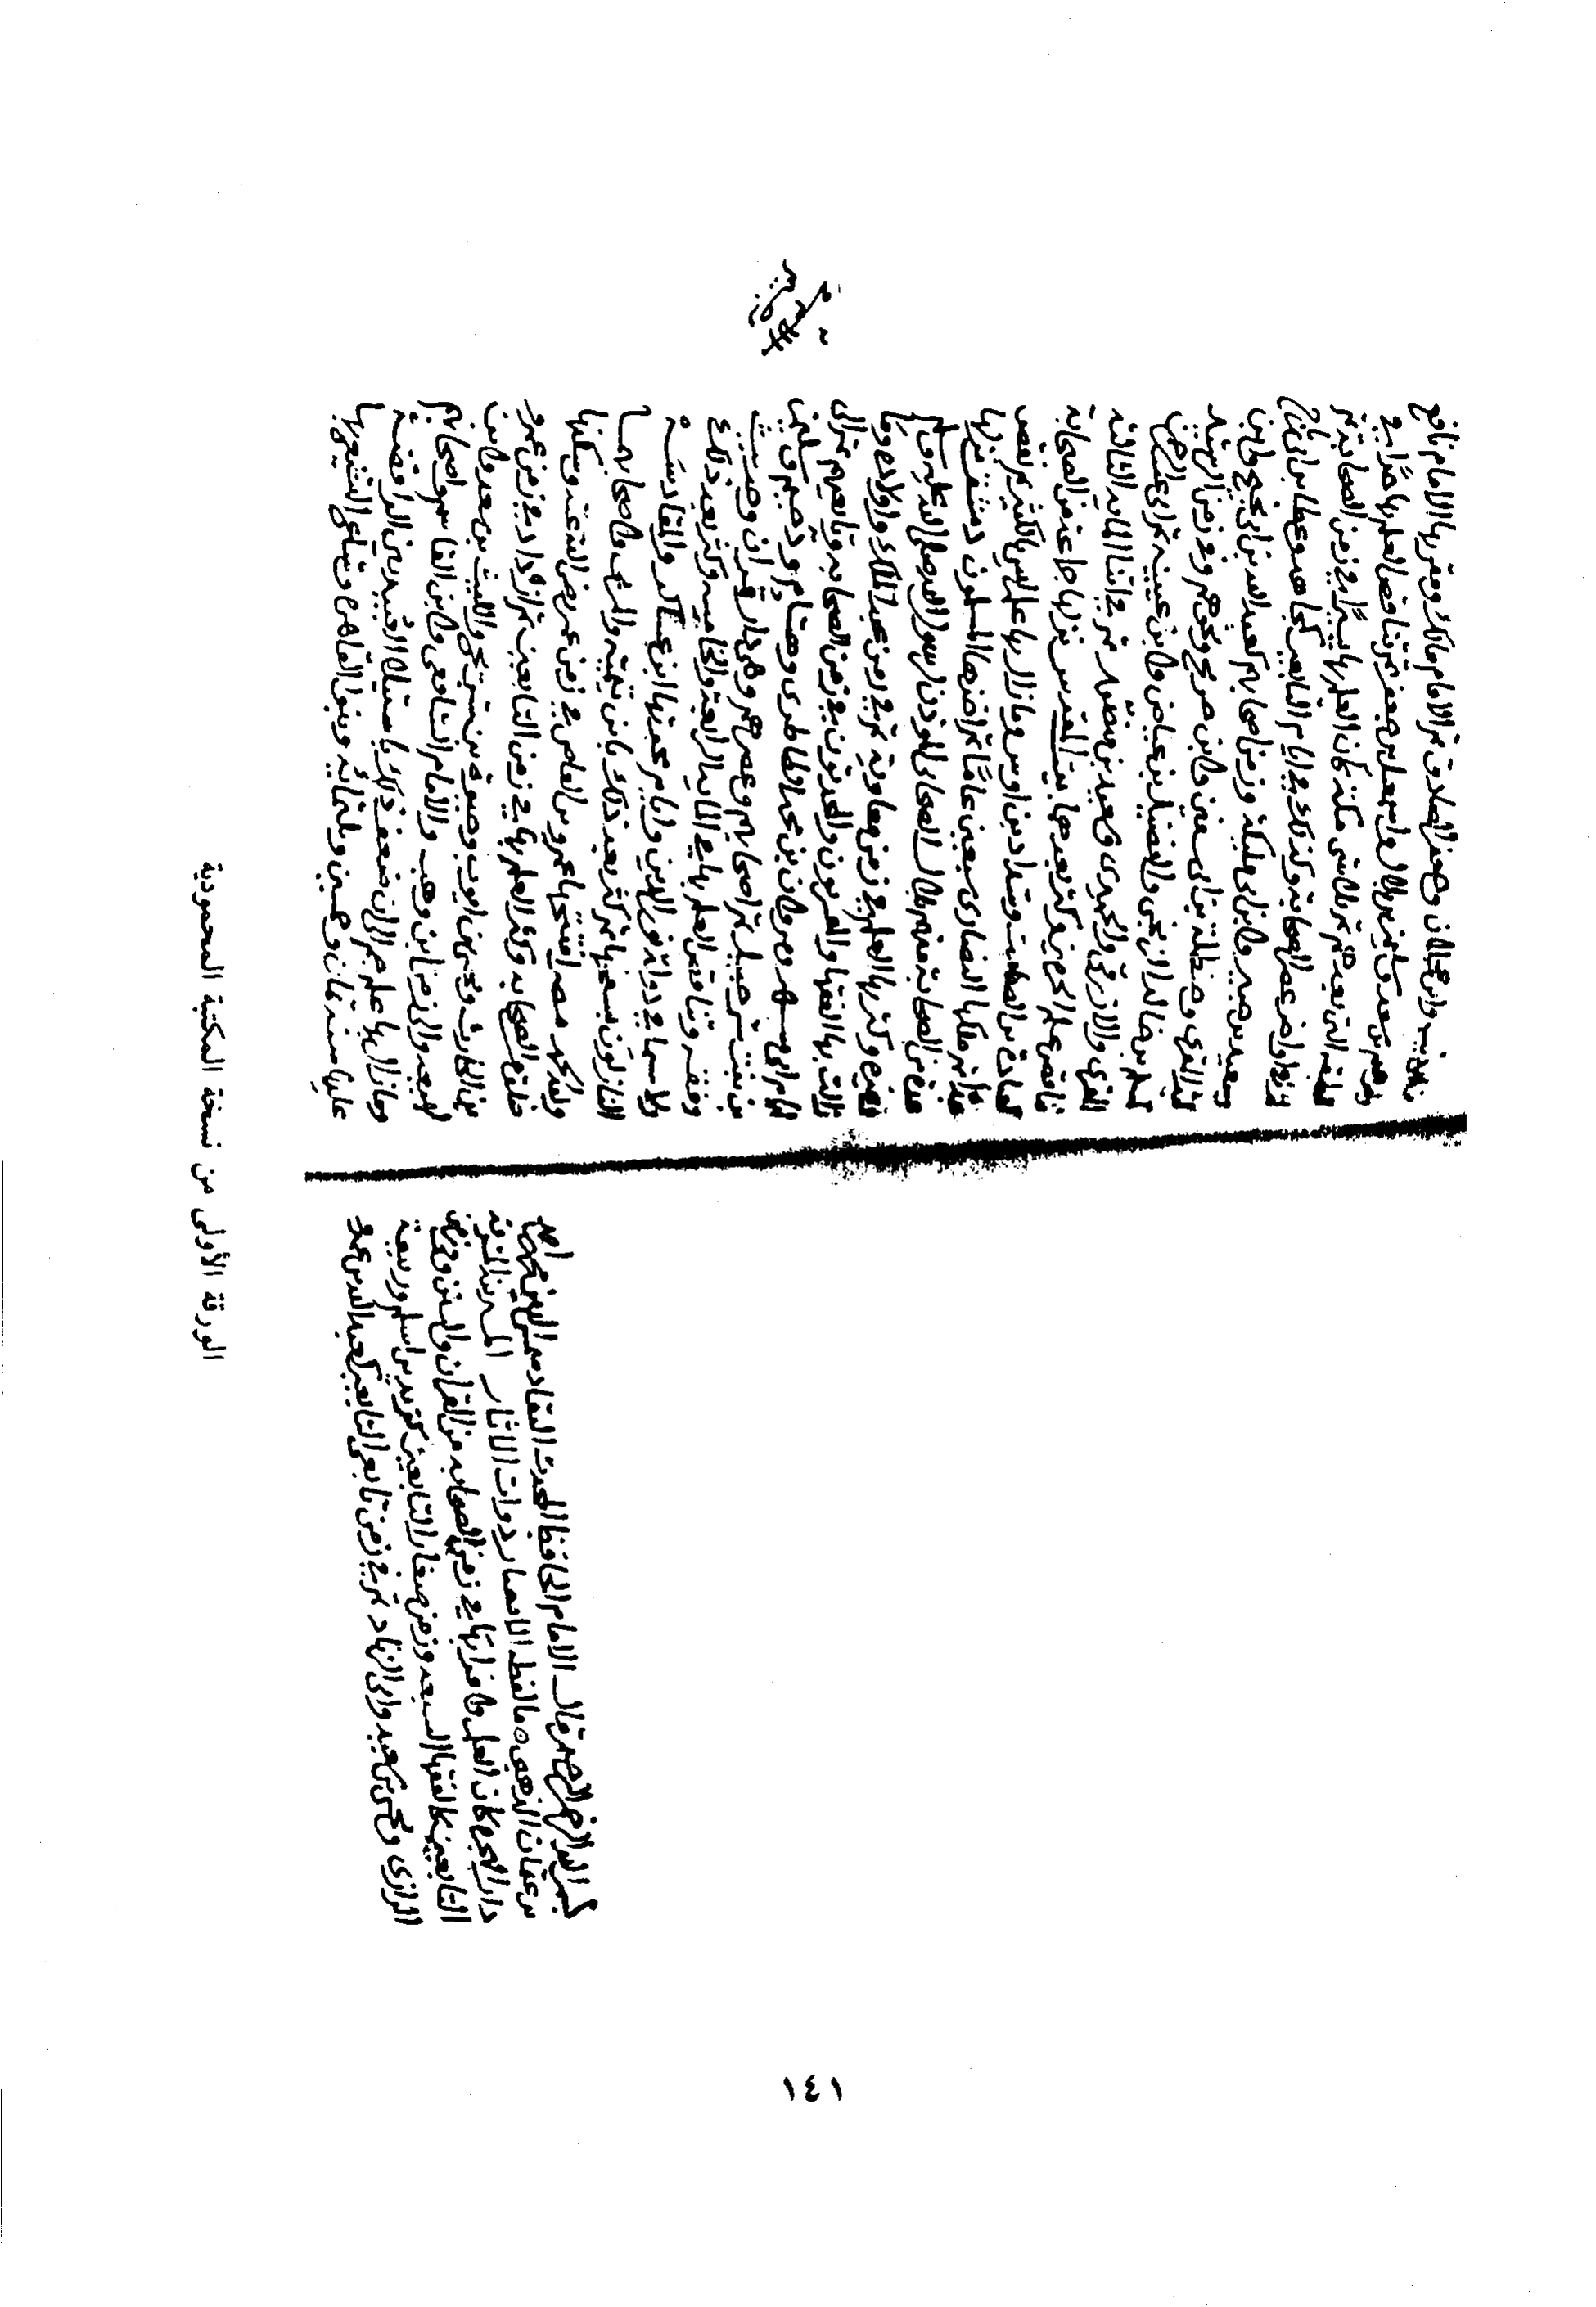 بسم الله الرحمن الرحيم قال الامام الحافظ المحدث النقاد شمس الدين محمد بن احمد
بن عثمان الذهبي ما لفظه الامصار ذوات الاثار المدينة المشرفة
دار الهجرة كان العلم وافرا بها في زمن الصحابة من القرآن والسنن وفي زمن
التابعين كالفقها السبعة وزمن صغار التابعين كزيد بن اسلم وربيعة
الرازي ويحيى بن سعيد وابي الزناد ثم في زمن تابعي التابعين كعبد الله بن عمر
وابن عجلان وجعفر الصادق ثم الامام مالك ومقريها الامام نافع
وابراهيم بن سعد وسليمان بن بلال واسمعيل بن جعفر ثم تناقص العلم بها جدًا في
الطبقة التي بعدهم ثم تلاشى مكة كان العلم بها يسيرًا في زمن الصحابة ثم
كثر في اواخر عصر الصحابة وكذلك في ايام التابعين كمجاهد وعطا بن ابي رباح
وسعيد بن جبير وابن ابي مليكة وزمن اصحابهم كعبد الله بن ابي نجيح وابن
كثير المقري وحنظلة بن ابي سفين وابن جريج ونحوهم وفي زمن الرشيد
كمسلم بن خالد الزنجي والفضيل بن عياض وابن عيينة ثم ابي عبد الرحمن
المقري والازرقي والحميدي وسعيد بن منصور ثم في اثنا المائة الثالثة
تناقص علم الحرمين وكثر بغيرهما بيت المقدس نزلها جماعة من الصحابة
كعبادة بن الصامت وشداد بن اوس وما زال بها علم ليس بالكثير ثم نقص
جدا ثم ملكها النصارى تسعين عامًا ثم اخذها المسلمون دمشق نزلها
عدة من الصحابة منهم بلال الصحابي المؤذن لرسول الله صلى الله عليه وسلم
وغيره وكثر بها العلم في زمن معاوية ثم في زمن عبد الملك واولاده وما
زالت بها الفقها والمقريون والمحدثون في زمن الصحابة وتابعيهم ثم الى
ايام ابي مسهر ومروان بن محمد الطاطري وهشام ودحيم وسليمان
بن بنت شرحبيل ثم اصحابهم وعصرهم وهي دار قران وحديث
وفقه وتناقص العلم بها في المائة الرابعة والخامسة وكثر بعد ذلك
ولا سيما في دولة نور الدين وايام محدثها ابن عساكر والمقادسة
النازلون بسفحها ثم كثر بعد ذلك بابن تيمية والمزي واصحابهما
ولله الحمد مصر افتتحها عمرو بن العاص في زمن عمر رضي الله عنه وسكنها
خلق من الصحابة وكثر العلم بها في زمن التابعين ثم ازداد في زمن عمرو
بن الحارث ويحيى بن ايوب وحيوة بن شريح والليث بن سعد وابن
لهيعة والى زمن ابن وهب والامام الشافعي وابن القاسم واصحابهم
وما زال بها علم جم الى ان ضعف ذلك باستيلاء العبيديين الرافضة
عليها سنة ثمان وخمسين وثلثمائة وبنوا القاهرة وشاع التشيع بها
الورقة الأولى من نسخة المكتبة المحمودية
١٤١